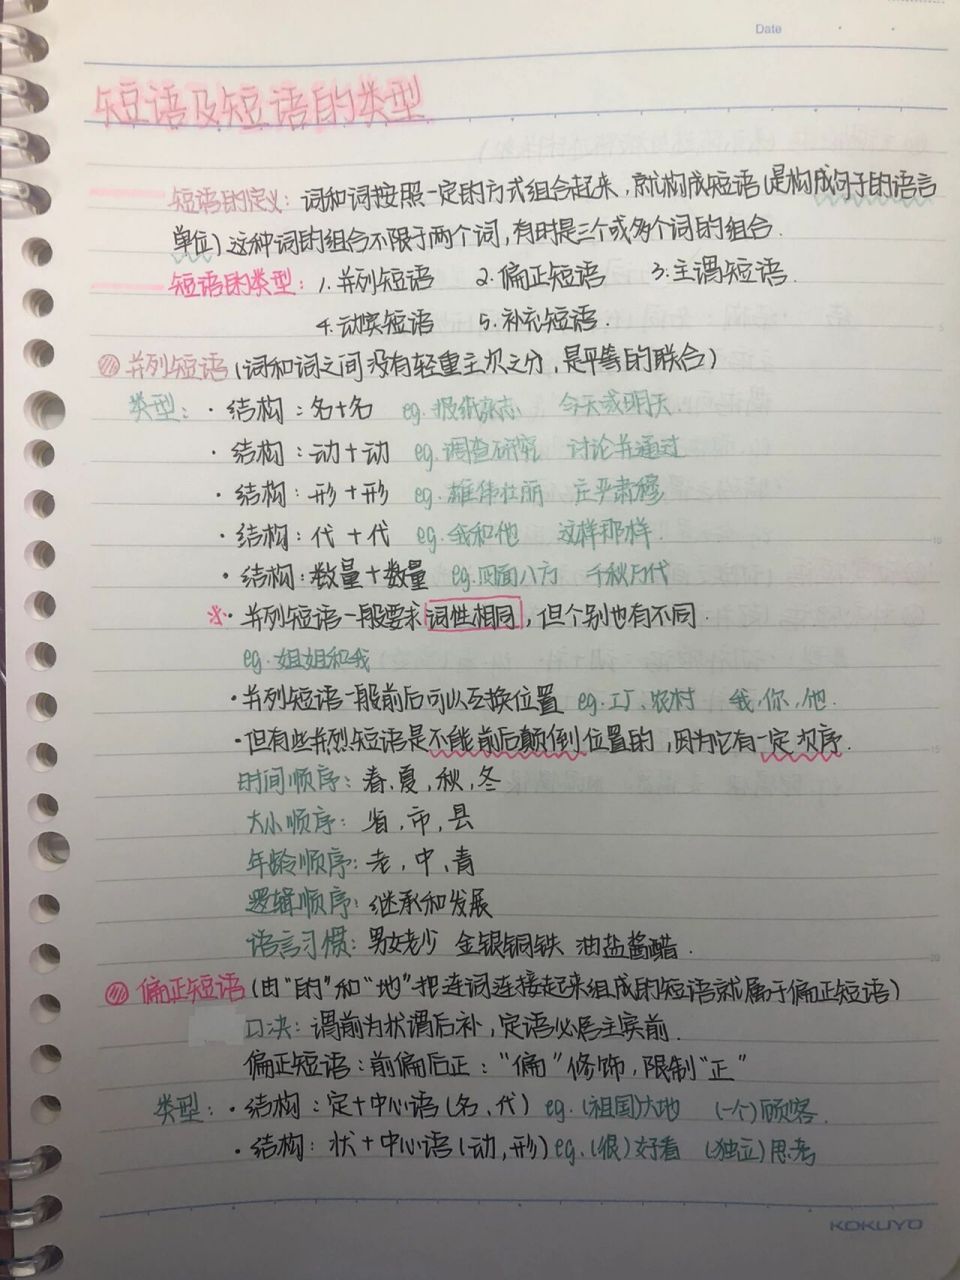 Date
短语及短语的类型
短语的定义：词和词按照一定的方式组合起来，就构成短语（是构成句子的语言
单位）这种词的组合不限于两个词，有时是三个或多个词的组合．
短语的类型：1.并列短语 2.偏正短语 3.主谓短语．
4.动宾短语 5.补充短语．
并列短语（词和词之间没有轻重主次之分，是平等的联合）
类型：·结构：名+名 eg.报纸杂志 今天或明天．
·结构：动+动 eg.调查研究 讨论并通过
·结构：形+形 eg.雄伟壮丽 庄严肃穆
·结构：代+代 eg.我和他 这样那样．
·结构：数量+数量 eg.四面八方 千秋万代
※·并列短语一般要求词性相同，但个别也有不同．
eg.姐姐和我
·并列短语一般前后可以互换位置 eg.工厂、农村 我，你，他．
·但有些并列短语是不能前后颠倒位置的，因为它有一定次序．
时间顺序：春，夏，秋，冬
大小顺序：省，市，县
年龄顺序：老，中，青
逻辑顺序：继承和发展
语言习惯：男女老少 金银铜铁 油盐酱醋．
偏正短语（由“的”和“地”把连词连接起来组成的短语就属于偏正短语）
口决：谓前为状谓后补，定语必居主宾前．
偏正短语：前偏后正：“偏”修饰，限制“正”
类型：·结构：定+中心语（名、代） eg.（祖国）大地 （一个）顾客．
·结构：状+中心语（动，形） eg.（很）好看 （独立）思考
KOKUYO